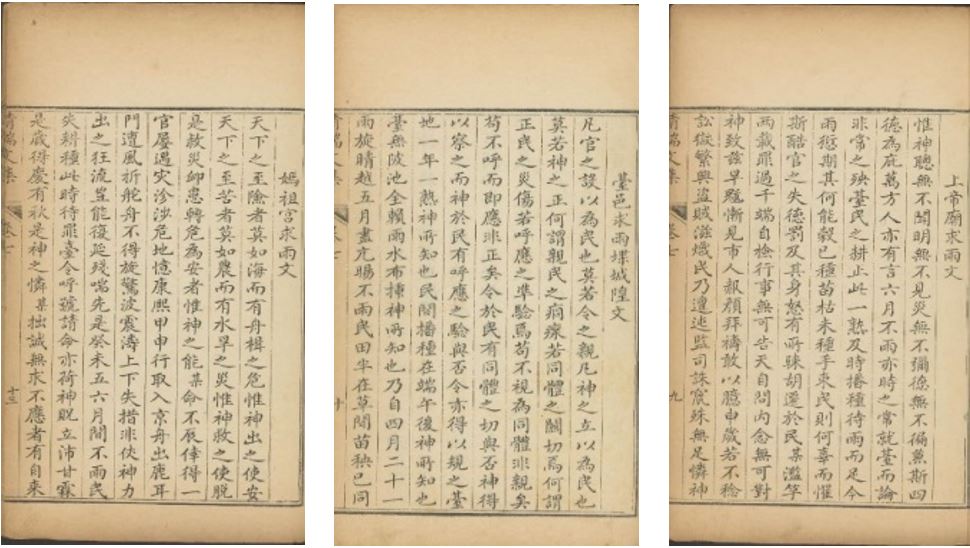 上帝廟求雨文
惟神聰無不聞明無不見災無不彌德無不徧兼斯四
德為庇萬方人亦有言六月不雨亦時之常就臺而論
非常之殃臺民之耕止此一熟及時播種待雨而足今
雨愆期其何能穀已種苗枯未種手束民則何喜而懼
斯酷官之失德罰及其身怒有所踈胡遷於民某濫竽
兩載罪過千端自檢行事無可告天自問内念無可對
神致茲旱魃漸見市人赧顏拜禱敢以臆申歲若不稔
訟獄繁興盜賊滋熾民乃遭迍監司誅殛殊無足憐神
清端文集 卷七 九
臺邑求雨牒城隍文
凡官之設以為民也莫若令之親凡神之立以為民也
莫若神之正何謂親民之痌瘝若同體之關切焉何謂
正民之災傷若呼應之準驗焉苟不視為同體非親矣
苟不呼而即應非正矣令於民有同體之切與否神得
以察之而神於民有呼應之驗與否令亦得以規之臺
地一年一熟神所知也民間播種在端午後神所知也
臺無陂池全賴雨水布揀神所知也乃自四月二十一
雨旋晴越五月盡亢暘不雨民田半在草間苗秧已同
清端文集 卷七 十
媽祖宮求雨文
天下之至險者莫如海而有舟楫之危惟神出之使安
天下之至苦者莫如農而有水旱之災惟神救之使脫
是救災卹患轉危為安者惟神之能某命不辰倖得一
官屢遇灾沴涉危地憶康熙甲申行取入京舟出鹿耳
門遭風折舵舟不得旋驚波震濤上下失措非伕神力
出之狂流豈能復延殘喘先是癸未五六月間不雨民
失耕種此時待罪臺令呼號請命亦荷神貺立沛甘霖
是歲得慶有秋是神之憐某拙誠無求不應者有自来
清端文集 卷七 十三